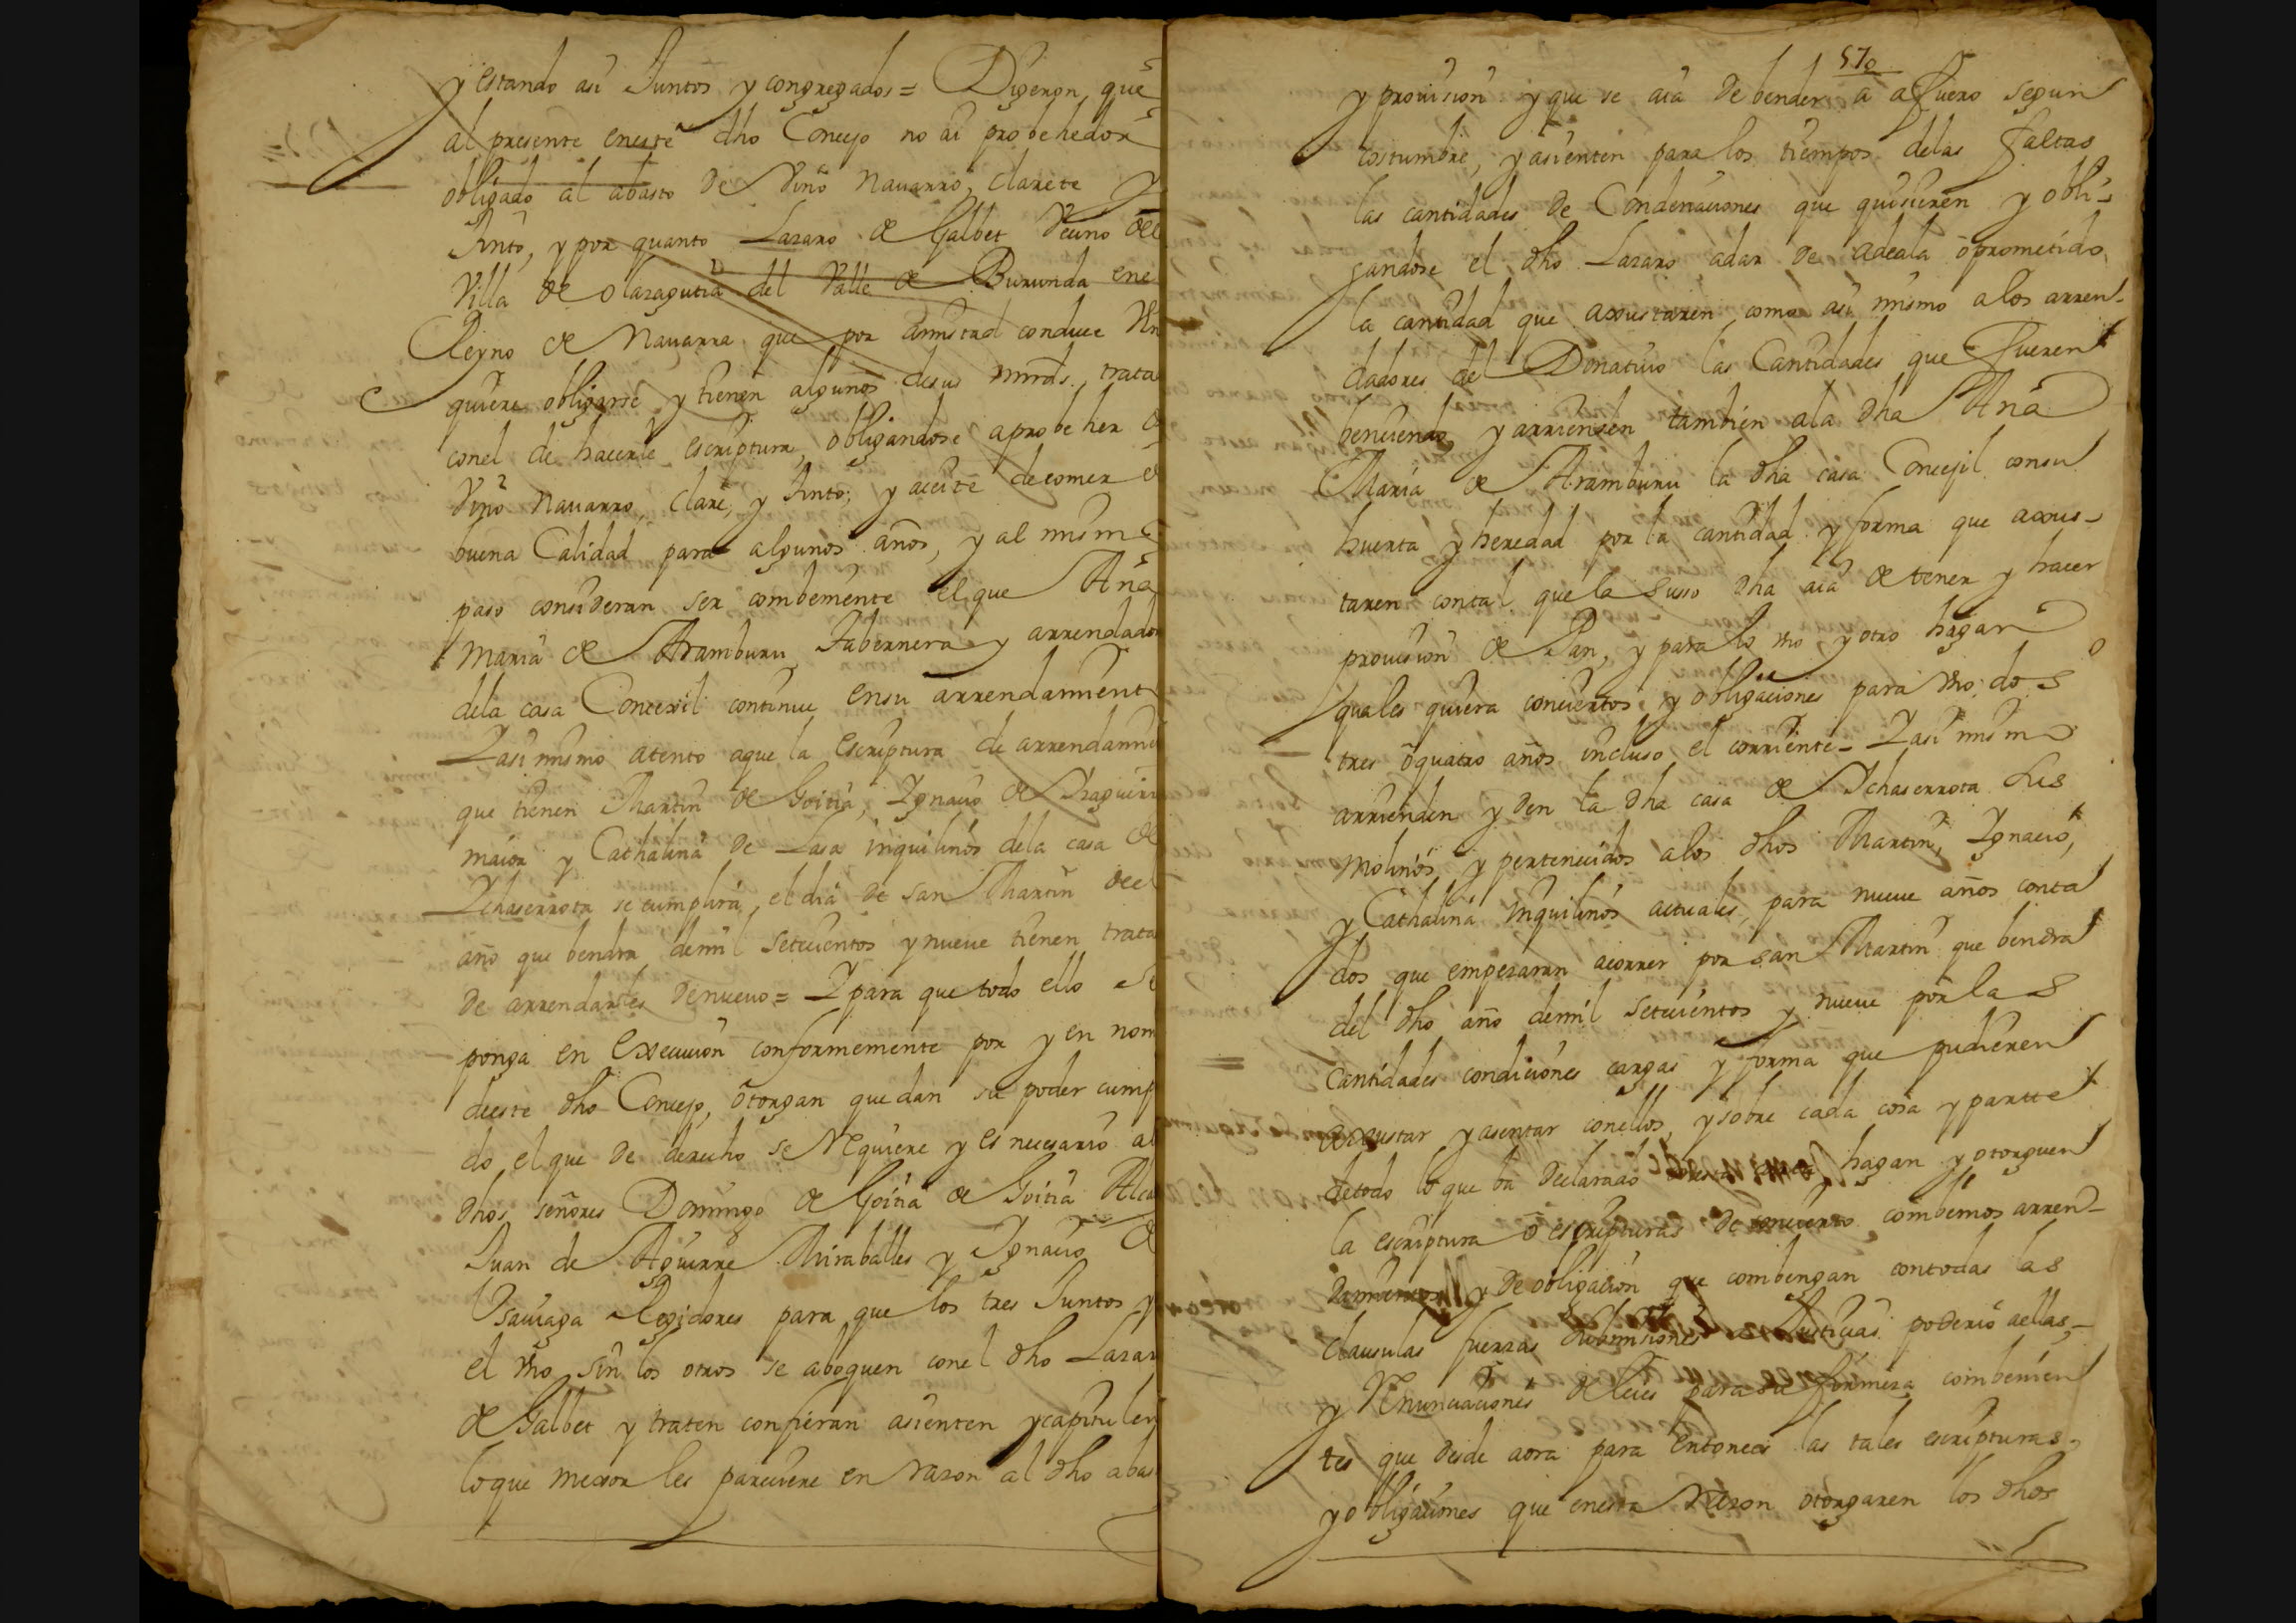 y estando asi Juntos y congregados = Digeron, que
al presente eneste dho Concejo no ai probehedor
obligado al abasto de Vino navarro, clarete y
tinto, y por quanto Lazaro de Galbet Vecino de
Villa de olazagutia del Valle de Burunda ene
Reyno de navarra que por amistad conduce Vn
quiere obligarse y tienen algunos desus mrds. trata
conel de hacerle escriptura, obligandose aprobeher de
Vino navarro, clare, y tinto, y aceite decomer de
buena Calidad para algunos años, y al mism
paso consideran ser combemente el que Ana
Maria de Aramburu Tabernera y arrendador
dela casa Concexil continue ensu arrendamient
Y asi mismo atento aque la escriptura de arrendami
que tienen Martin de Goitia, Ygnacio de
maior y Cathalina de Lasa inquilinos dela casa de
Ychaserrota se cumplira, el dia de san Martin de
año que bendra demil setecientos y nueve tienen trata
de arrendarsles denuevo = Y para que todo ello se
ponga en execucion conformemente por y en nom
deeste dho Concejo, otorgan que dan su poder cump
do el que de derecho se Requiere y es necesario al
dhos señores Domingo de Goitia de Goitia Alca
Juan de Aguirre Miraballes y Ygnacio de
Vsauiaga Regidores para que los tres Juntos y
el vno sin los otros se aboquen conel dho Lazar
de Galbet y traten confieran asienten y capitulen
loque mexor les pareciere en razon al dho abas
570
y prouision y que se aia de bender a afuero segun
costumbre, y asienten para los tiempos delas faltas
las cantidades de Condenaciones que quisieren y obli-
gandose el dho Lazaro adar de adeala o prometido,
la cantidad que axustaren, como asi mismo alos arren-
dadores del Donatiuo las Cantidades que fueren
benciendo, y arriensen tambien ala dha Ana
Maria de Aramburu la dha casa Concejil consu
huerta y heredad por la cantidad y forma que axus-
taren contal que la suso dha aia de tener y hacer
prouision de Pan, y para lo vno y otro hagan
quales quiera conciertos y obligaciones para vno, dos
tres o quatro años incluso el corriente - Y asi mismo
arrienden y den la dha casa de Ychaserrota sus
molinos, y pertenecidos alos dhos Martin, Ygnacio,
y Cathalina inquilinos actuales, para nueue años conta
dos que empezaran acorrer por san Martin que bendra
del dho año demil setecientos y nueue por las
Cantidades condiciones cargas y forma que pudieren
axustar y asentar conellos, y sobre cada cosa y partte
detodo lo que ba declarado hagan y otorguen
la escriptura o escripturas de conciertos combenios arren-
damientos y de obligacion que combengan contodas las
clausulas fuerzas sumisiones a Justicias poderio aellas,
y Renunciaciones de leies para su firmeza combenien
tes que desde aora para entonces las tales escripturas,
y obligaciones que enesta Razon otorgaren los dhos